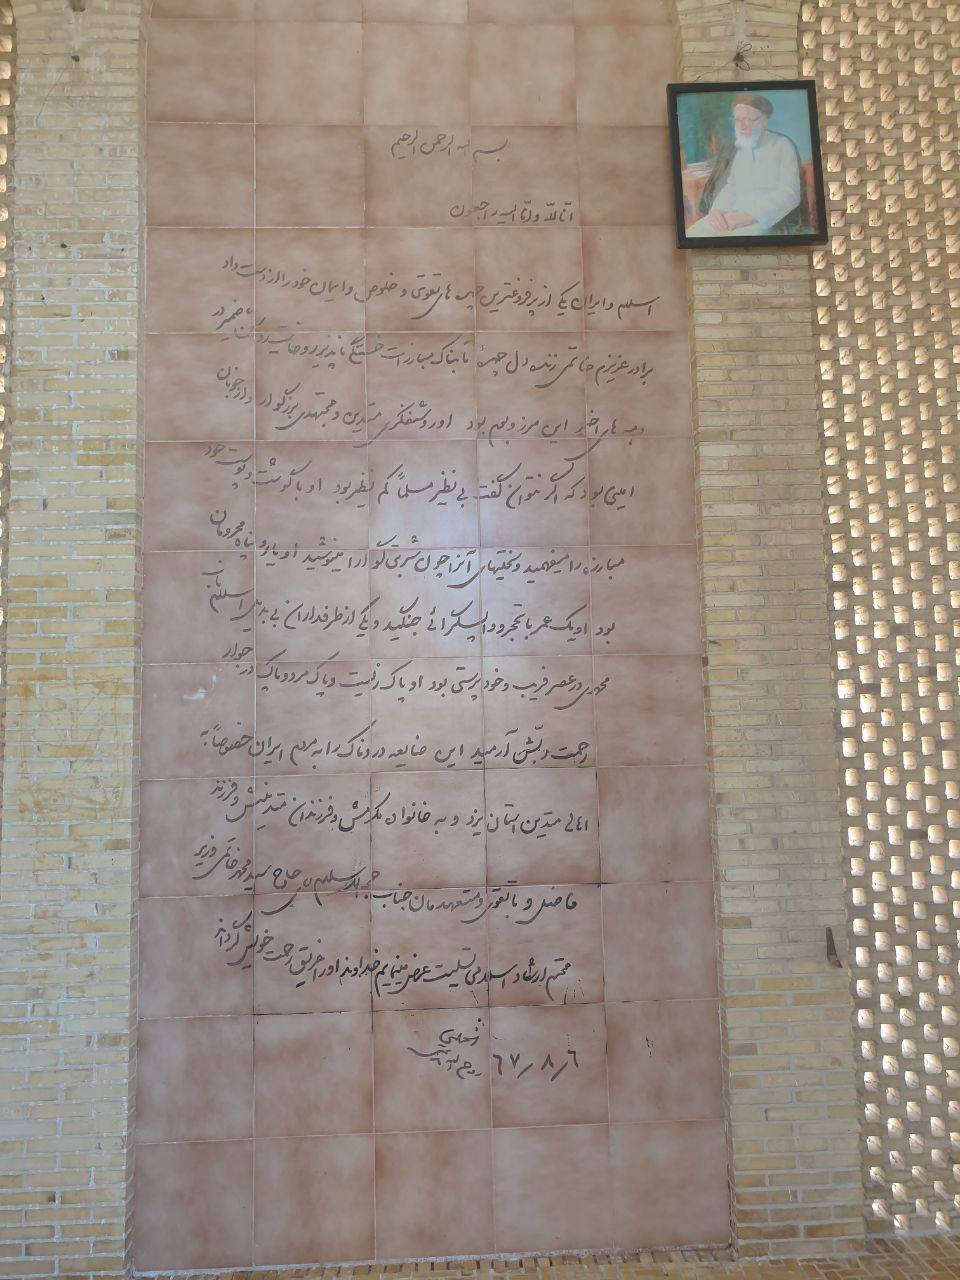 بسم الله الرحمن الرحیم
انّا للّه و انّا الیه راجعون
اسلام و ایران یکی از پرفروغترین چهره های تقوی و خلوص و ایمان خود را از دست داد
برادر عزیزم خاتمی زنده دل چهرهٔ تابناک مبارزات خستگی ناپذیر روحانیت و روشن ضمیر در
دهه های اخیر این مرز و بوم بود او روشنفکری متدین و مجتهدی بزرگوار و ارجی
امینی بود که اگر نتوان گفت بی نظیر مسلماً کم نظیر بود او با گوشت و پوست خود
مبارزه را میفهمید و سختیهای آنرا چون شربتی گوارا مینوشید او یار و پناه محرومان
بود او یک عمر با تحجر و واپسگرائی جنگید و یکی از طرفداران بی بدیل اسلام ناب
محمدی در عصر فریب و خودپرستی بود او پاک زیست و پاک مرد و پاک در جوار
رحمت ربّش آرمید این ضایعه دردناک را به مردم ایران خصوصاً به
اهالی متدین استان یزد و به خانواده مکرمش و فرزندان متدینش و فرزند
فاضل و باتقوی و متعهدمان جناب حجةالاسلام حاج سید محمد خاتمی وزیر
محترم ارشاد اسلامی تسلیت عرض مینمایم خداوند او را غریق رحمت خویش گرداند
٦٧/٨/٦
روح الله الموسوی الخمینی